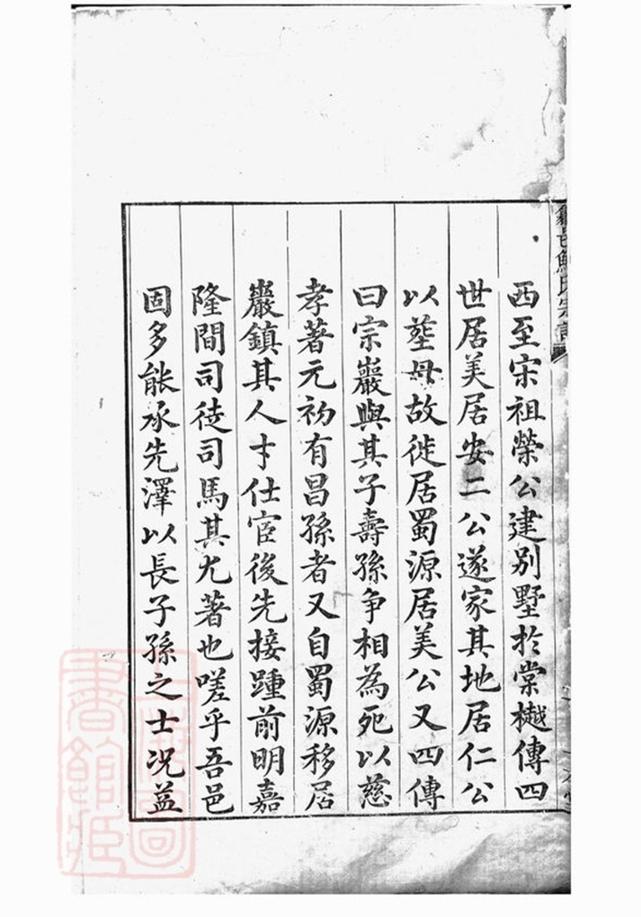 鮑氏宗譜
西至宋祖榮公建別墅於棠樾傳四
世居美居安二公遂家其地居仁公
以塟母故徙居蜀源居美公又四傳
曰宗巖與其子壽孫争相為死以慈
孝著元初有昌孫者又自蜀源移居
巖鎮其人才仕宦後先接踵前明嘉
隆間司徒司馬其尤著也嗟乎吾邑
固多能承先澤以長子孫之士况益
書館